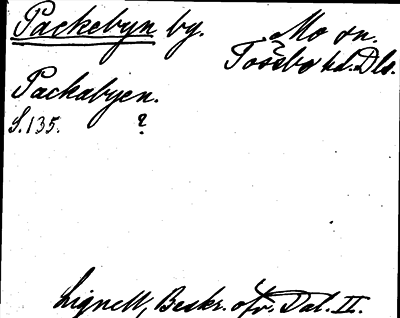 Packebyn by.
Mo sn.
Tössbo hd. Dls.
Packabyen.
S. 135. ?
Lignell, Beskr. öfv. Dal. II.